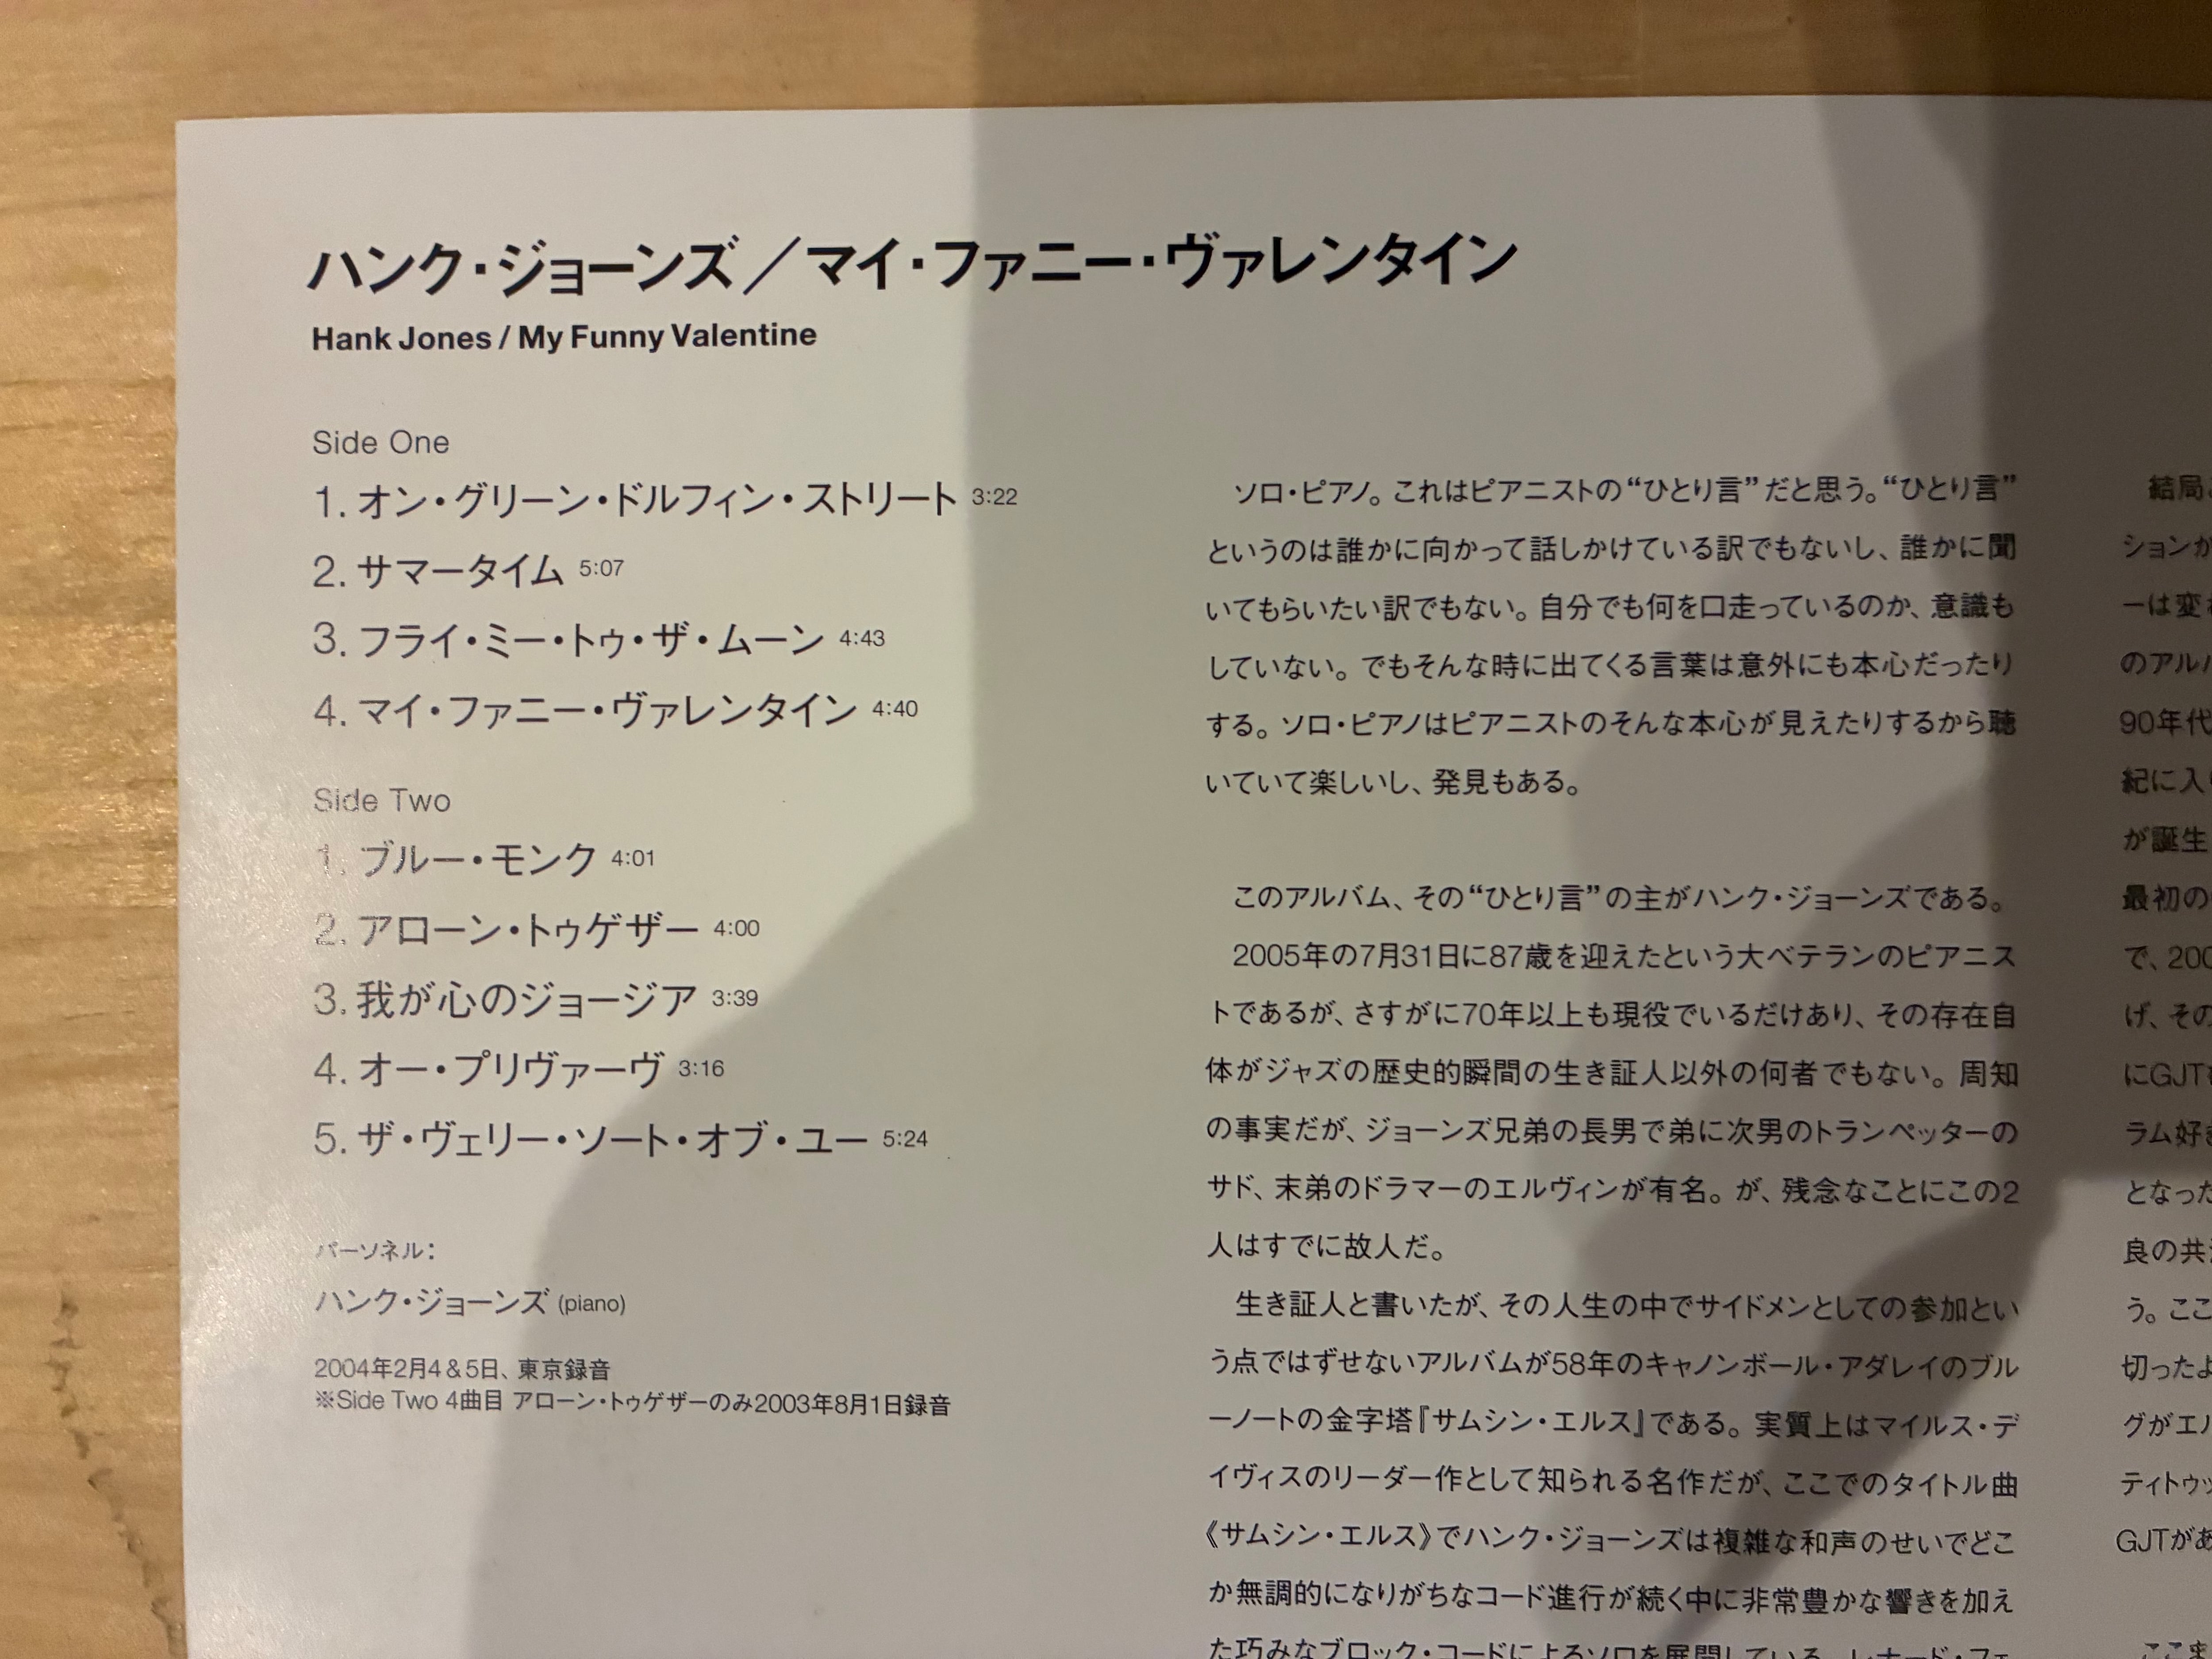 ハンク・ジョーンズ／マイ・ファニー・ヴァレンタイン
Hank Jones / My Funny Valentine
Side One
1. オン・グリーン・ドルフィン・ストリート 3:22
2. サマータイム 5:07
3. フライ・ミー・トゥ・ザ・ムーン 4:43
4. マイ・ファニー・ヴァレンタイン 4:40
Side Two
1. ブルー・モンク 4:01
2. アローン・トゥゲザー 4:00
3. 我が心のジョージア 3:39
4. オー・プリヴァーヴ 3:16
5. ザ・ヴェリー・ソート・オブ・ユー 5:24
パーソネル：
ハンク・ジョーンズ (piano)
2004年2月4＆5日、東京録音
※Side Two 4曲目 アローン・トゥゲザーのみ2003年8月1日録音
ソロ・ピアノ。これはピアニストの“ひとり言”だと思う。“ひとり言”
というのは誰かに向かって話しかけている訳でもないし、誰かに聞
いてもらいたい訳でもない。自分でも何を口走っているのか、意識も
していない。でもそんな時に出てくる言葉は意外にも本心だったり
する。ソロ・ピアノはピアニストのそんな本心が見えたりするから聴
いていて楽しいし、発見もある。
このアルバム、その“ひとり言”の主がハンク・ジョーンズである。
2005年の7月31日に87歳を迎えたという大ベテランのピアニス
トであるが、さすがに70年以上も現役でいるだけあり、その存在自
体がジャズの歴史的瞬間の生き証人以外の何者でもない。周知
の事実だが、ジョーンズ兄弟の長男で弟に次男のトランペッターの
サド、末弟のドラマーのエルヴィンが有名。が、残念なことにこの2
人はすでに故人だ。
生き証人と書いたが、その人生の中でサイドメンとしての参加とい
う点ではずせないアルバムが58年のキャノンボール・アダレイのブル
ーノートの金字塔『サムシン・エルス』である。実質上はマイルス・デ
イヴィスのリーダー作として知られる名作だが、ここでのタイトル曲
《サムシン・エルス》でハンク・ジョーンズは複雑な和声のせいでどこ
か無調的になりがちなコード進行が続く中に非常豊かな響きを加え
た巧みなブロック・コードによるソロを展開している。レナード・フェ
結局
ションが
ーは変
のアル
90年代
紀に入
が誕生
最初の
で、200
げ、その
にGJT
ラム好
となった
良の共
う。ここ
切ったよ
グがエル
ティトゥッ
GJTがあ
ここま